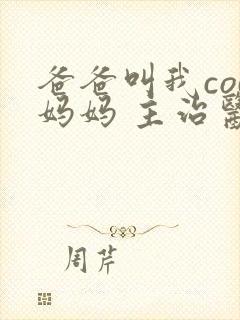 爸爸叫我co
妈妈 主治
周芹